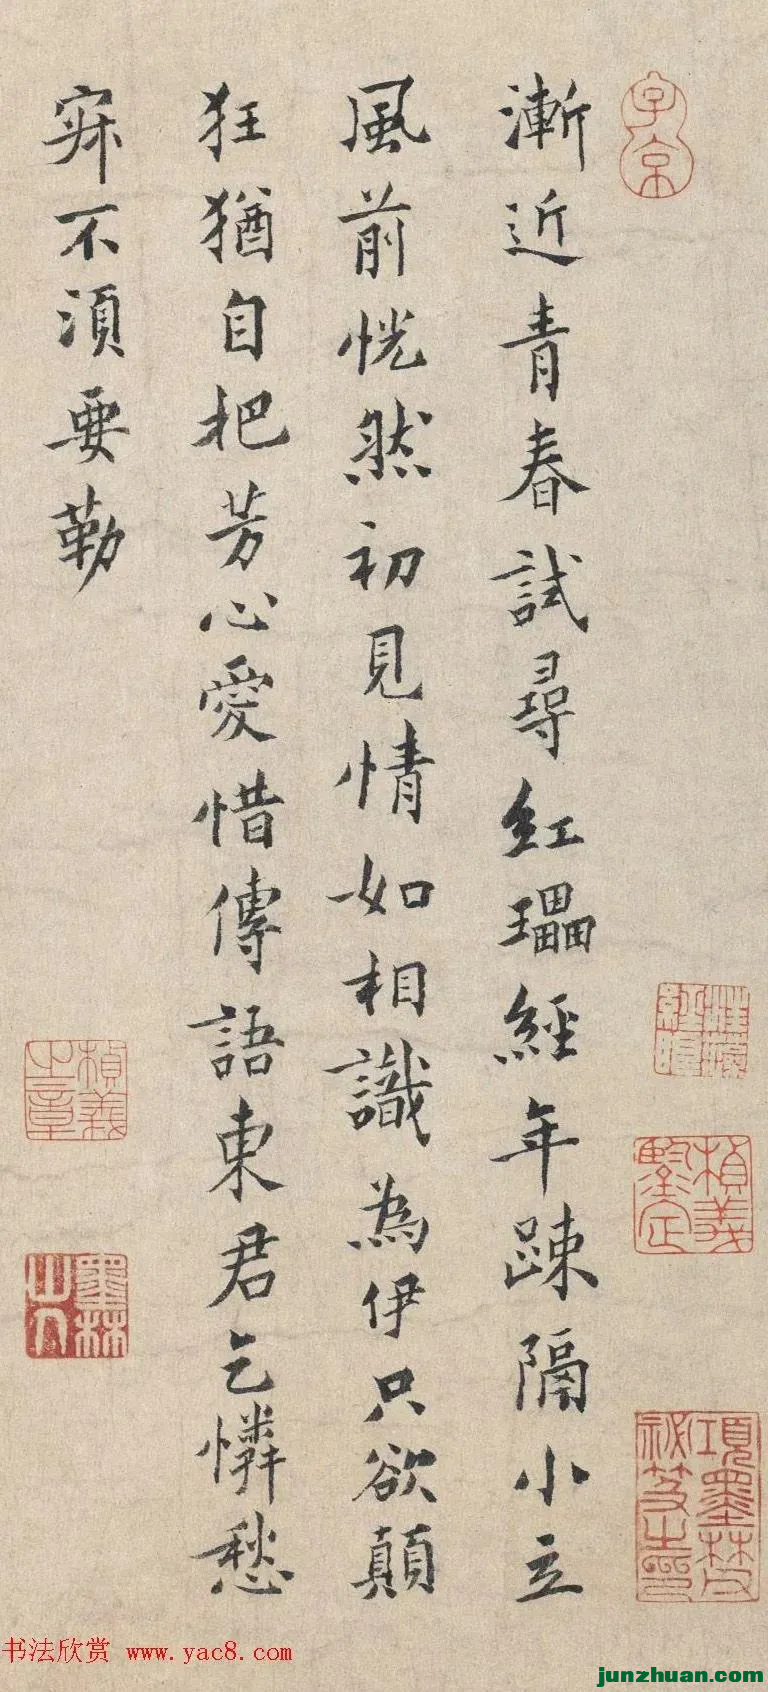 漸近青春試尋紅㼍經年踈隔小立
風前恍然初見情如相識為伊只欲顛
狂猶自把芳心愛惜傳語東君乞憐愁
寂不須要勒
子京
楨義
之章
墨林
山人
項墨林父
祕笈之印
书法欣赏 www.yac8.com
junzhuan.com